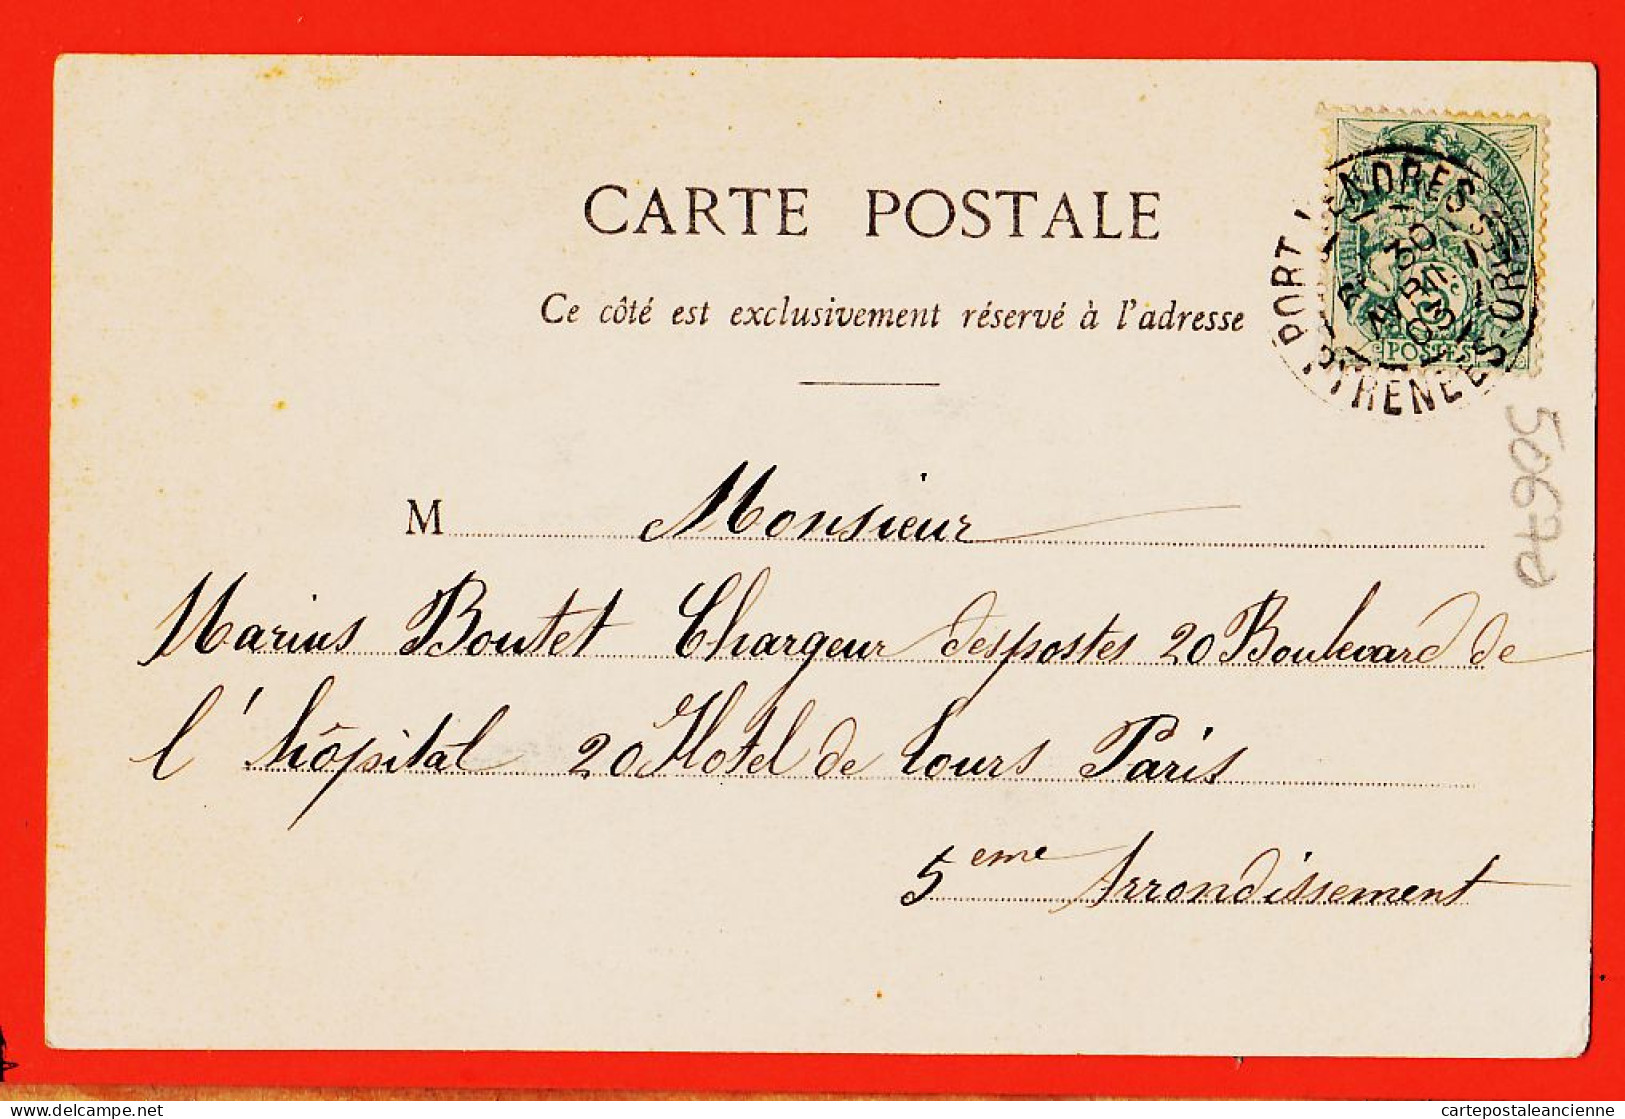 CARTE POSTALE
Ce côté est exclusivement réservé à l'adresse
PORT-VENDRES
PYRENEES-ORIENTLES
30
AVRIL
03
POSTES
M Monsieur
Marius Boutet Chargeur des postes 20 Boulevard de
l'hôpital 20 Hotel de tours Paris
5eme Arrondissement
50670
delcampe.net
cartepostaleancienne